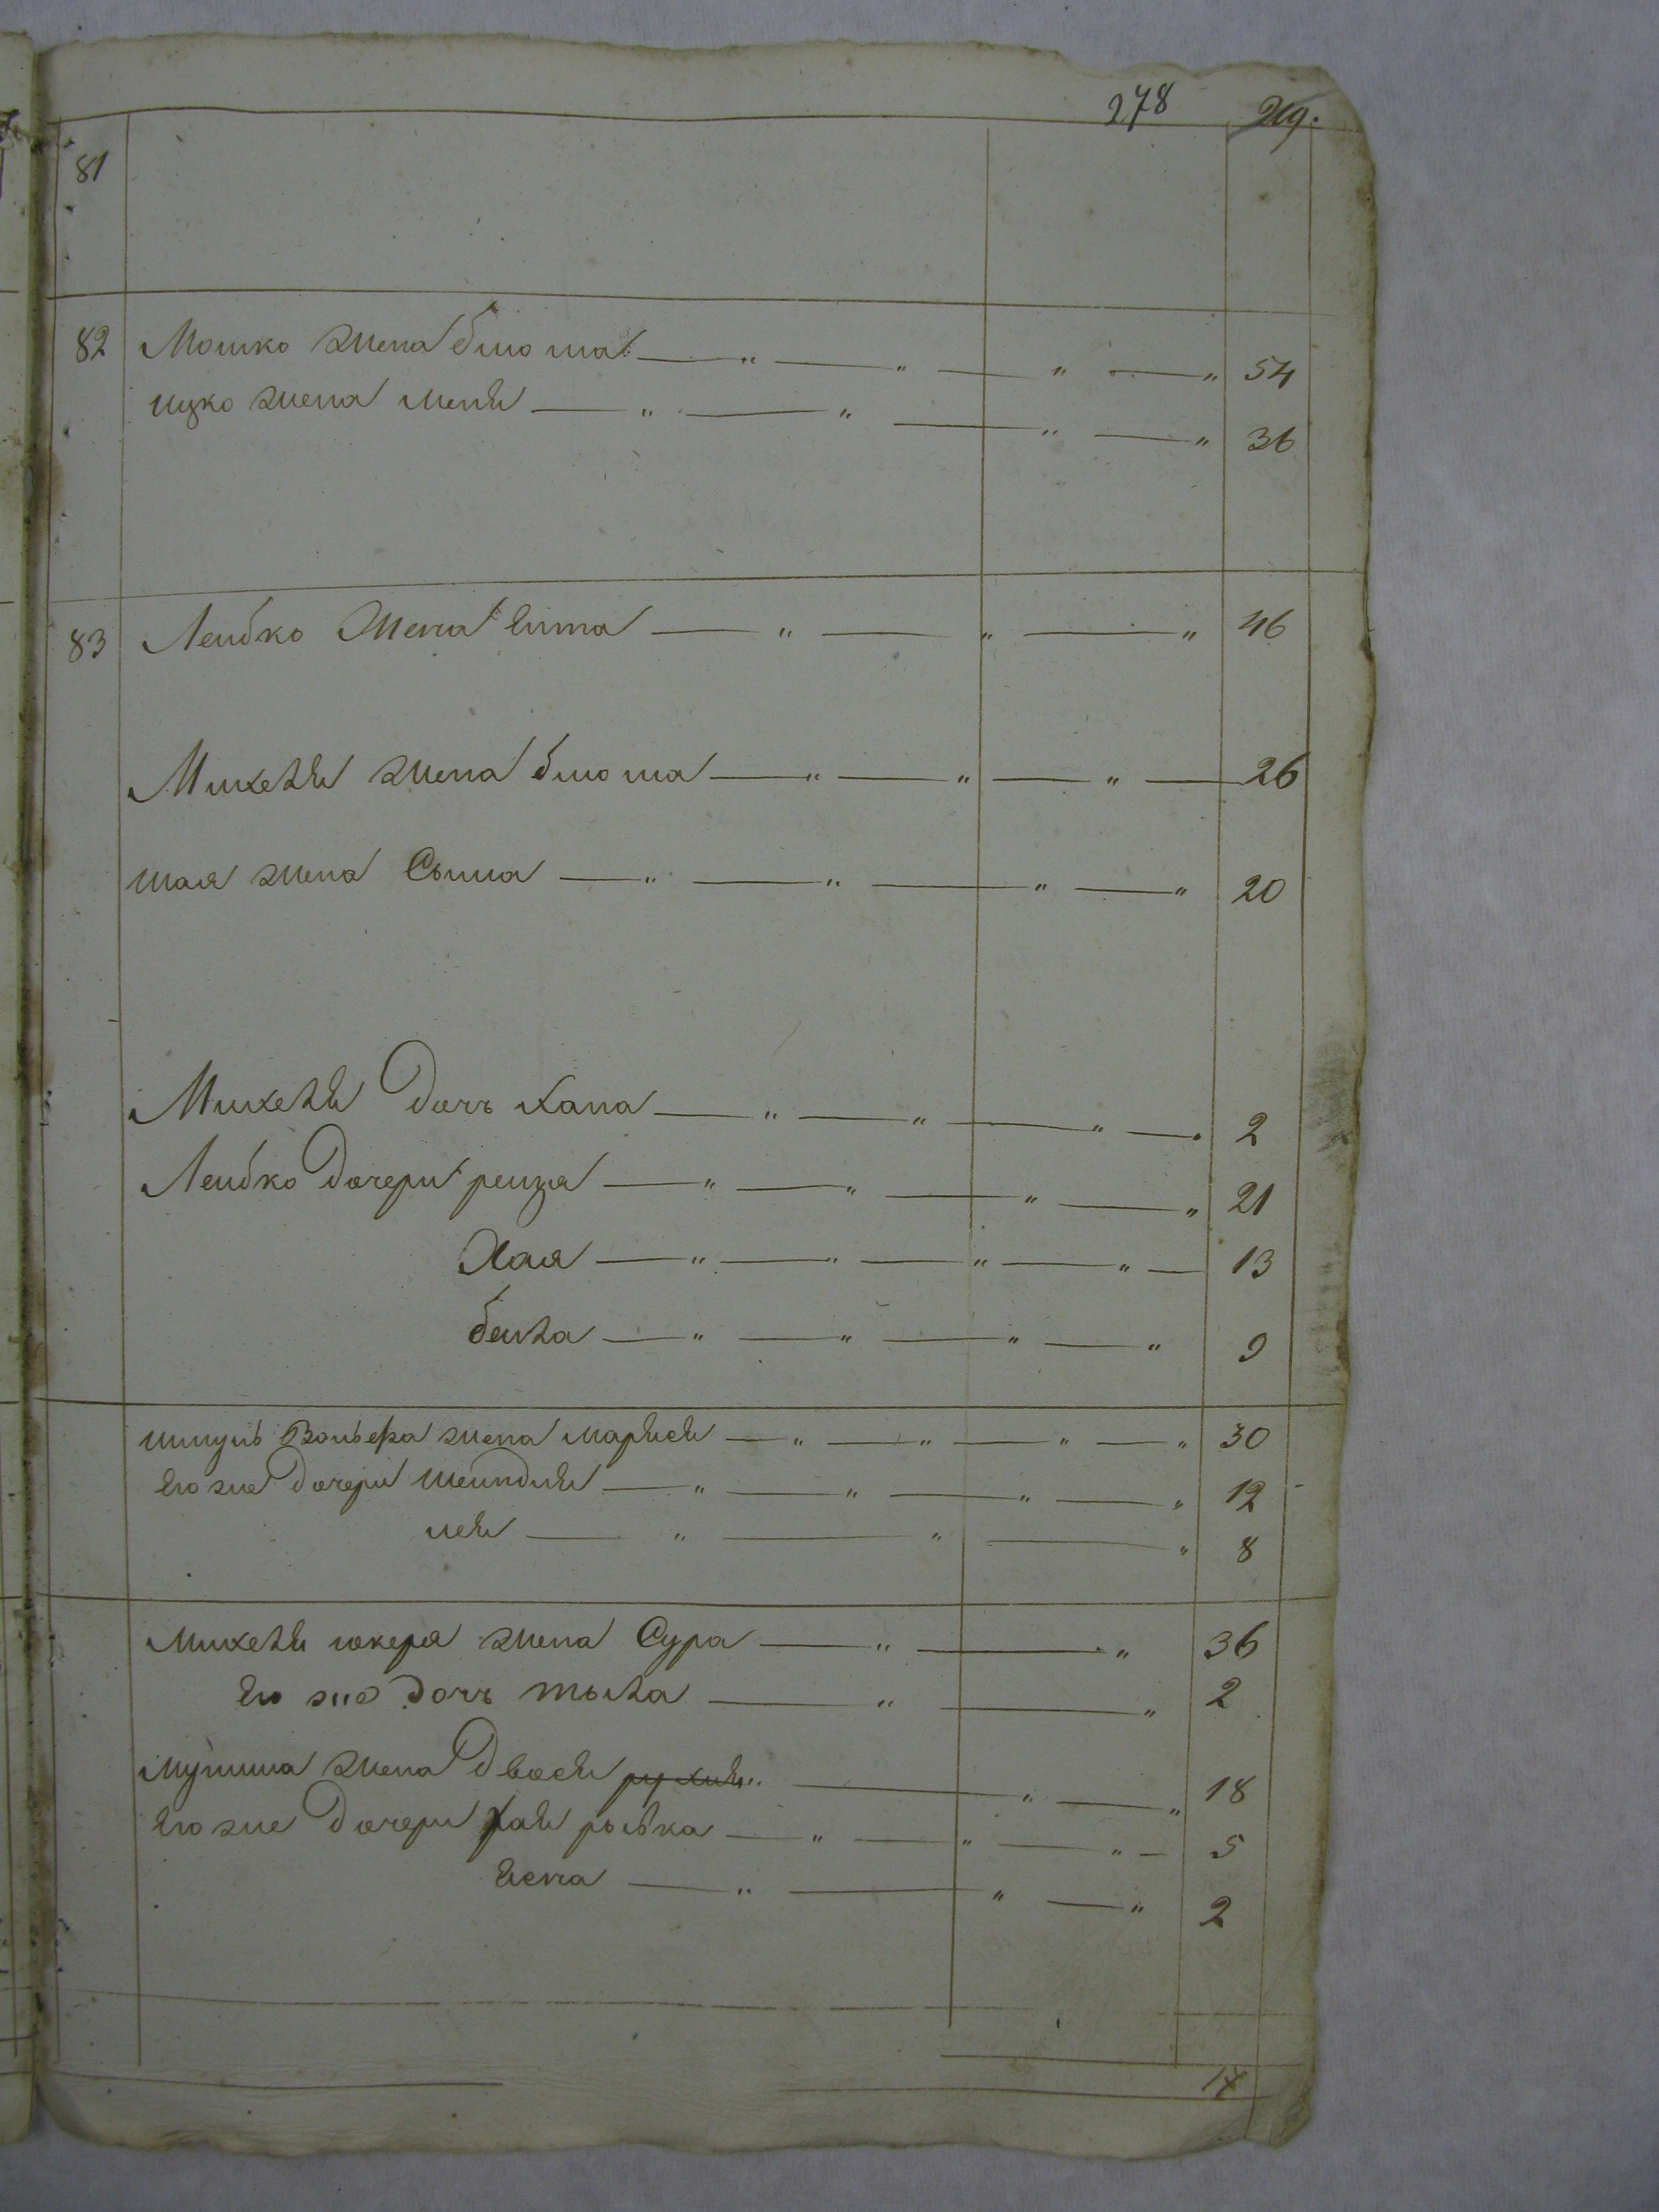 278
81
82 Мошко жена блюма " " " " 54
ицко жена меня " " " " 36
83 Лейбко жена Гита " " " 46
Михель жена блюма " " " 26
шая жена Сыма " " " " 20
Михель дочь хана " " " 2
Лейбко дочери рейзя " " " " 21
Хая " " " " 13
бейла " " " " 9
шмуль Вольфа жена марьися " " " " 30
его же дочери шейндля " " " " 12
лея " " " 8
Михель юкеля жена Сура " " 36
его же дочь тыла " " 2
жена двося " " 18
его же дочери хая рывка " " " 5
" " " 2
17